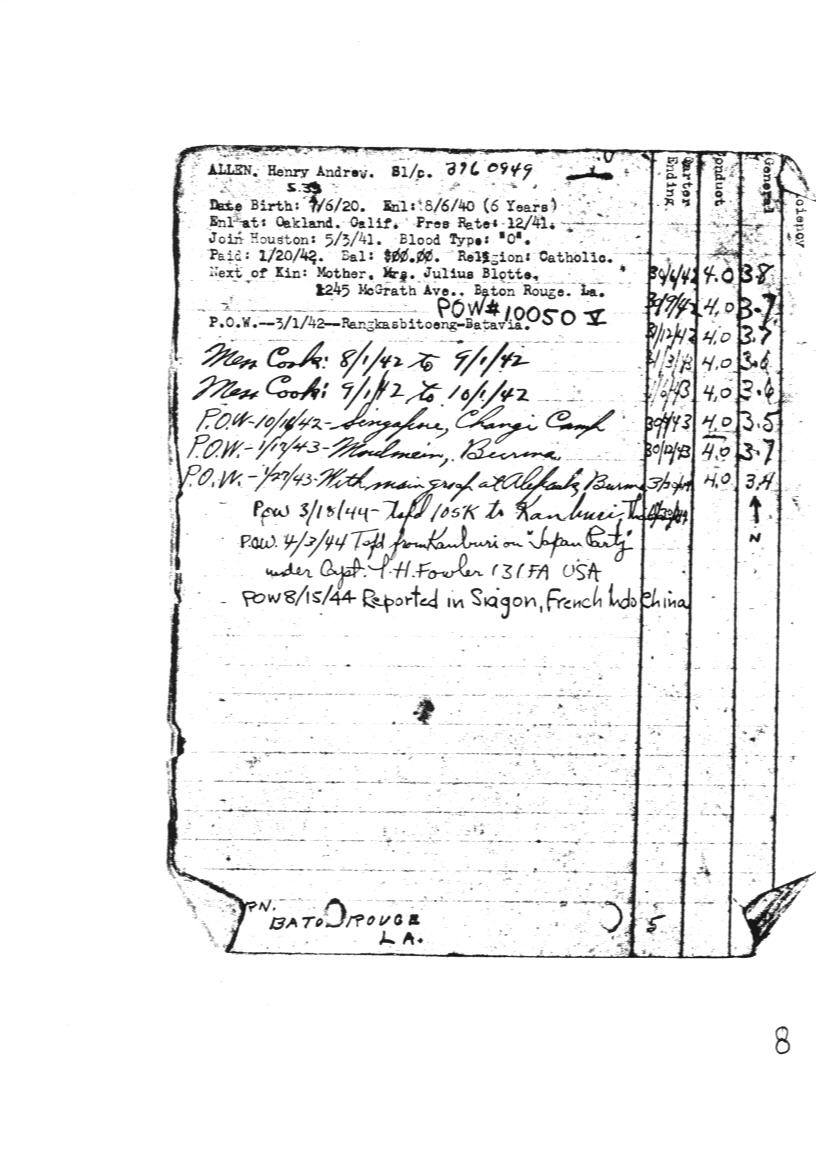 ALLEN, Henry Andrew. S1/c. 376 0949
5.33
Date Birth: 7/6/20. Enl: 8/6/40 (6 Years)
Enl at: Oakland. Calif. Pres Rate: 12/41.
Join Houston: 5/3/41. Blood Type: "O".
Paid: 1/20/42. Bal: $00.00. Religion: Catholic.
Next of Kin: Mother. Mrs. Julius Blotte,
1245 McGrath Ave.. Baton Rouge. La.
POW# 10050 V
P.O.W.--3/1/42--Rangkasbitoeng-Batavia.
Mess Cook: 8/1/42 to 9/1/42
Mess Cook: 9/1/42 to 10/1/42
P.O.W-10/16/42-Singapore, Changi Camp
P.O.W.-1/17/43-Moulmein, Burma
P.O.W.-1/27/43-With main group at Burma
POW 3/18/44- Tsfd 105K to Kanburi,
P.O.W. 4/3/44 Tsfd from Kanburi on "Japan Party"
under Capt. H. Fowler 131FA USA
POW 8/15/44 Reported in Siagon, French Indo China
Quarter Ending
Conduct
General
30/6/42 4.0 3.8
30/9/42 4.0 3.7
31/12/42 4.0 3.7
31/3/43 4.0 3.6
4.0 3.6
30/9/43 4.0 3.5
30/12/43 4.0 3.7
4.0 3.4
N
PN.
BATON ROUGE
LA.
5
8